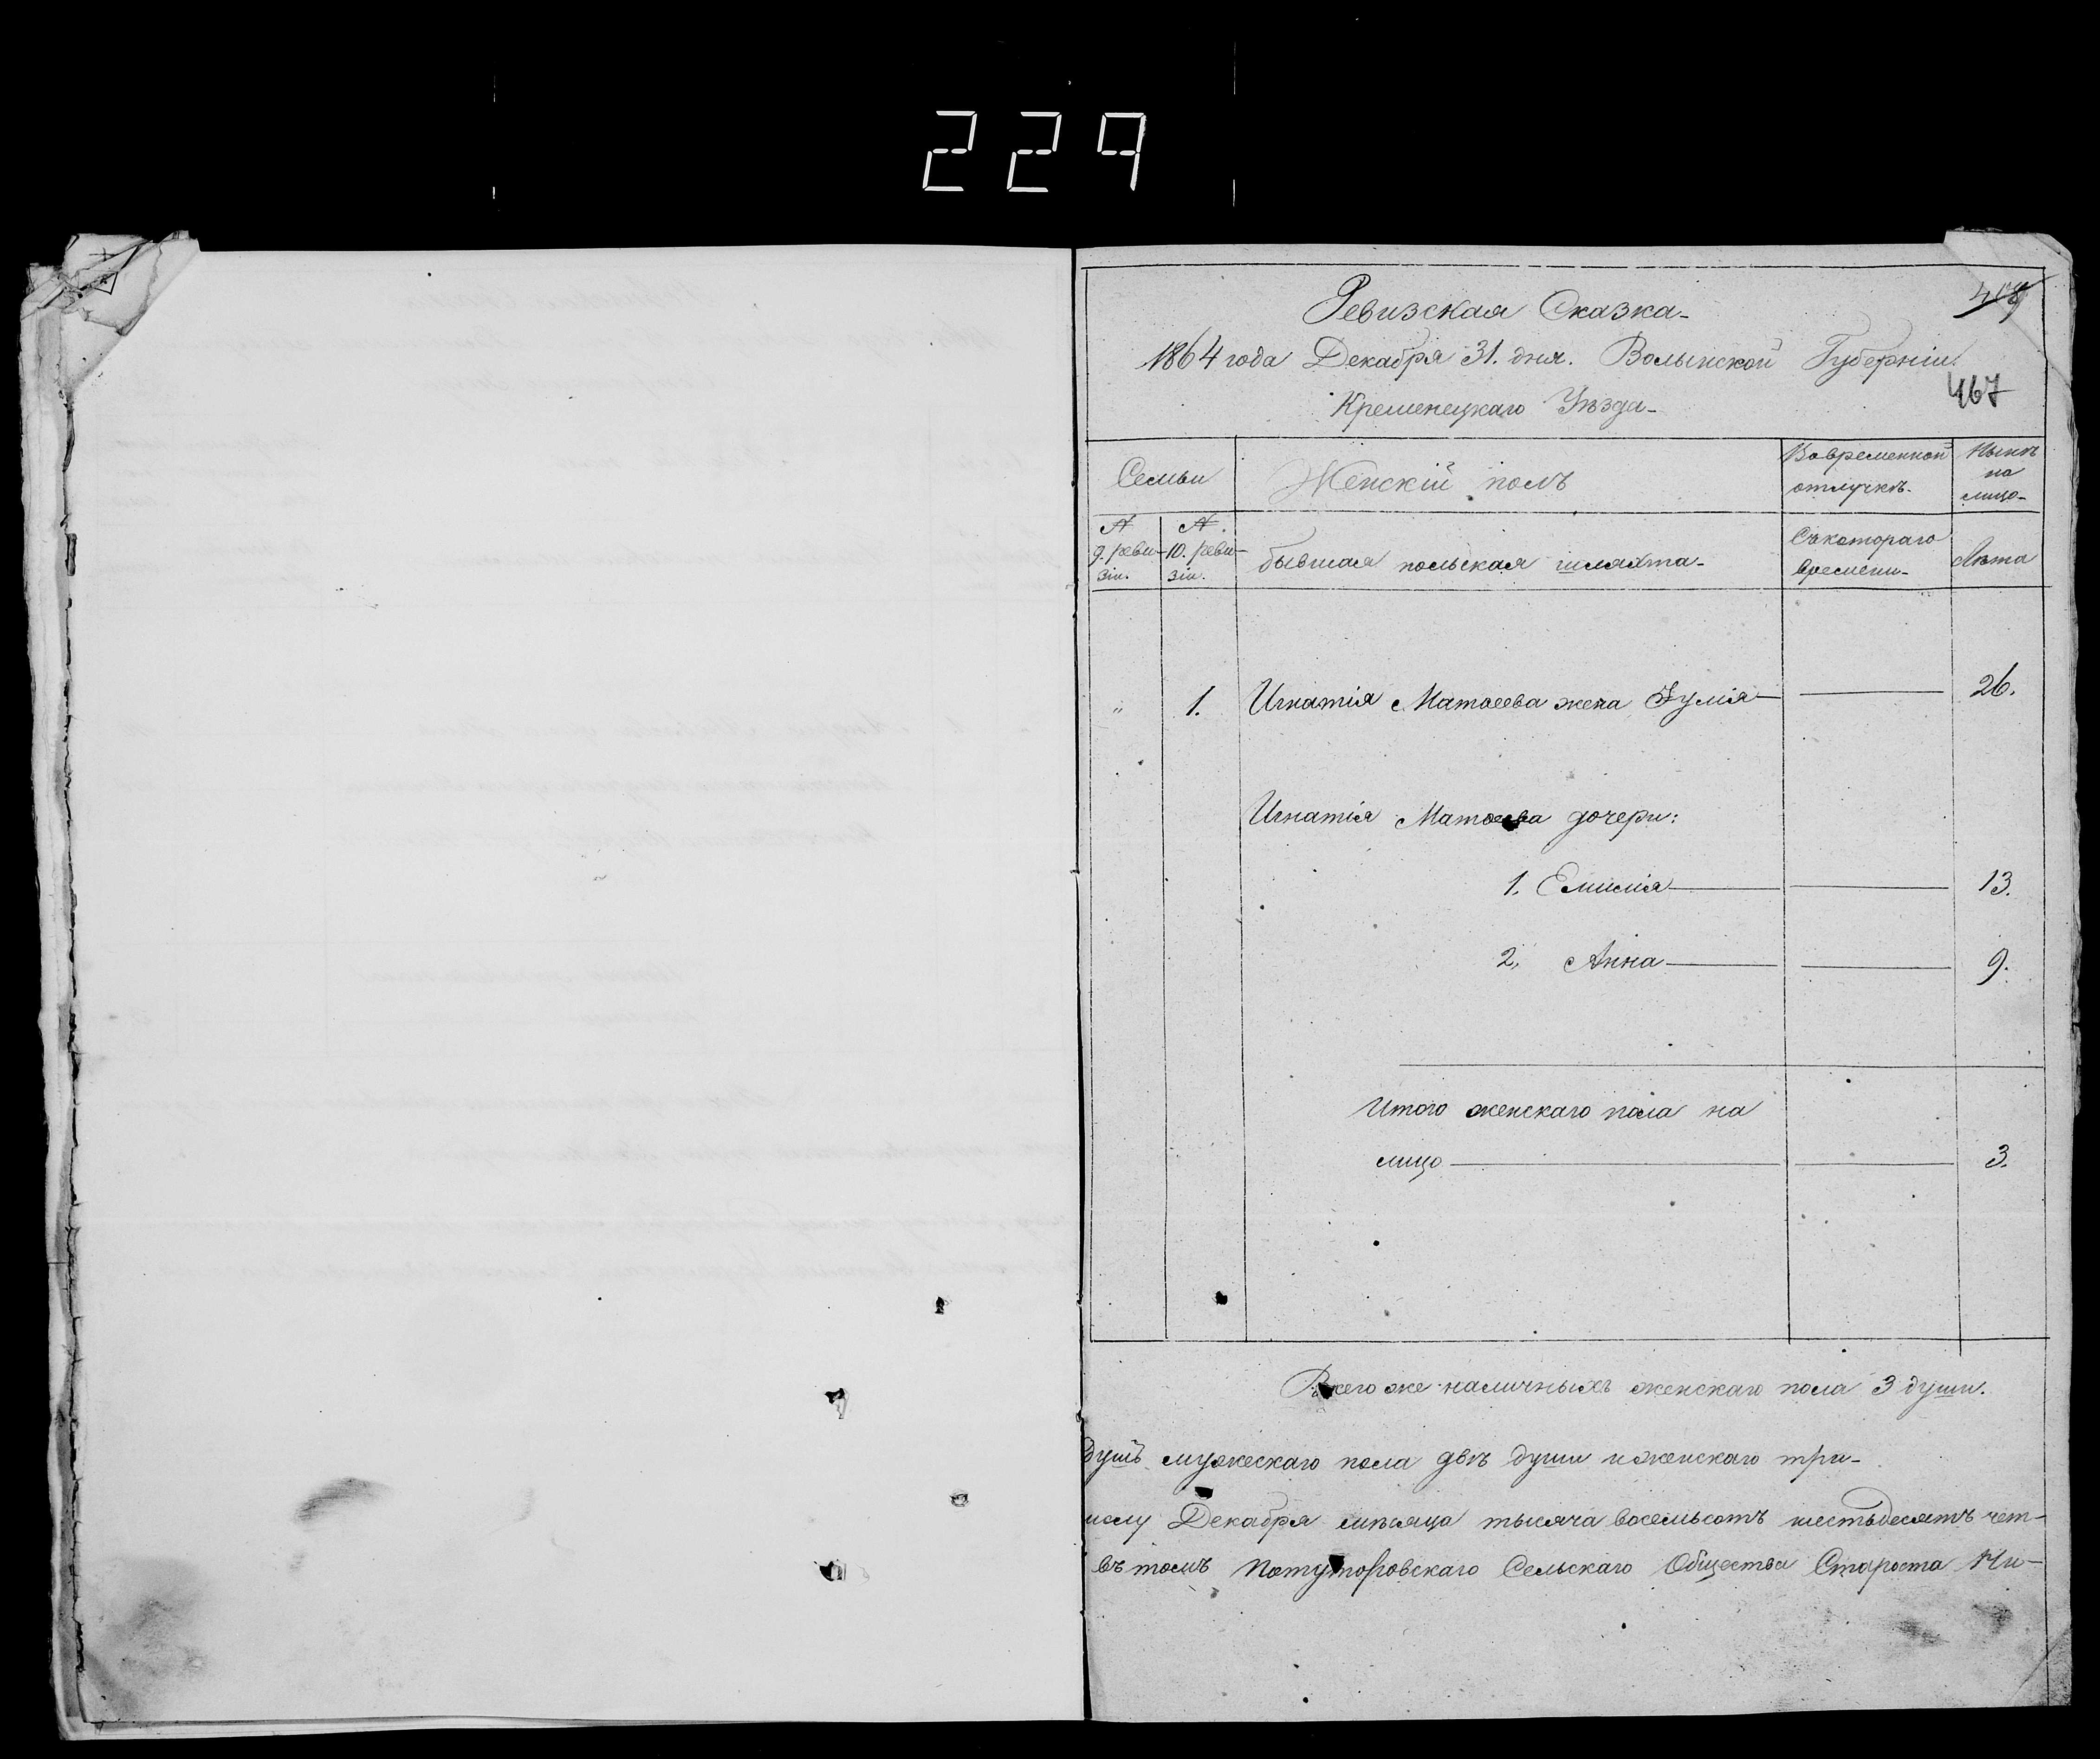 229
Ревизская Сказка-
1864 года Декабря 31. дня. Волынской Губерніи.
467
Кременецкаго Уѣзда-
Семьи
Женскій полъ
Вовременной отлучкѣ.
Нынѣ на лицо-
№ 9. реви-зіи.
№. 10. реви-зіи.
бывшая польская шляхта-
Съкотораго времени-
Лѣта
" 1. Игнатія Матѳеева жена Юлія 26.
Игнатія Матѳеева дочери:
1. Емилія 13.
2, Анна 9.
Итого женскаго пола на
лицо 3.
Всего же наличныхъ женскаго пола 3 души.
душъ мужескаго пола двѣ души и женскаго три-
Декабря мѣсяца тысяча восемьсотъ шестьдесятъ чет-
въ томъ Потуторовскаго Сельскаго Общества Староста Ни-